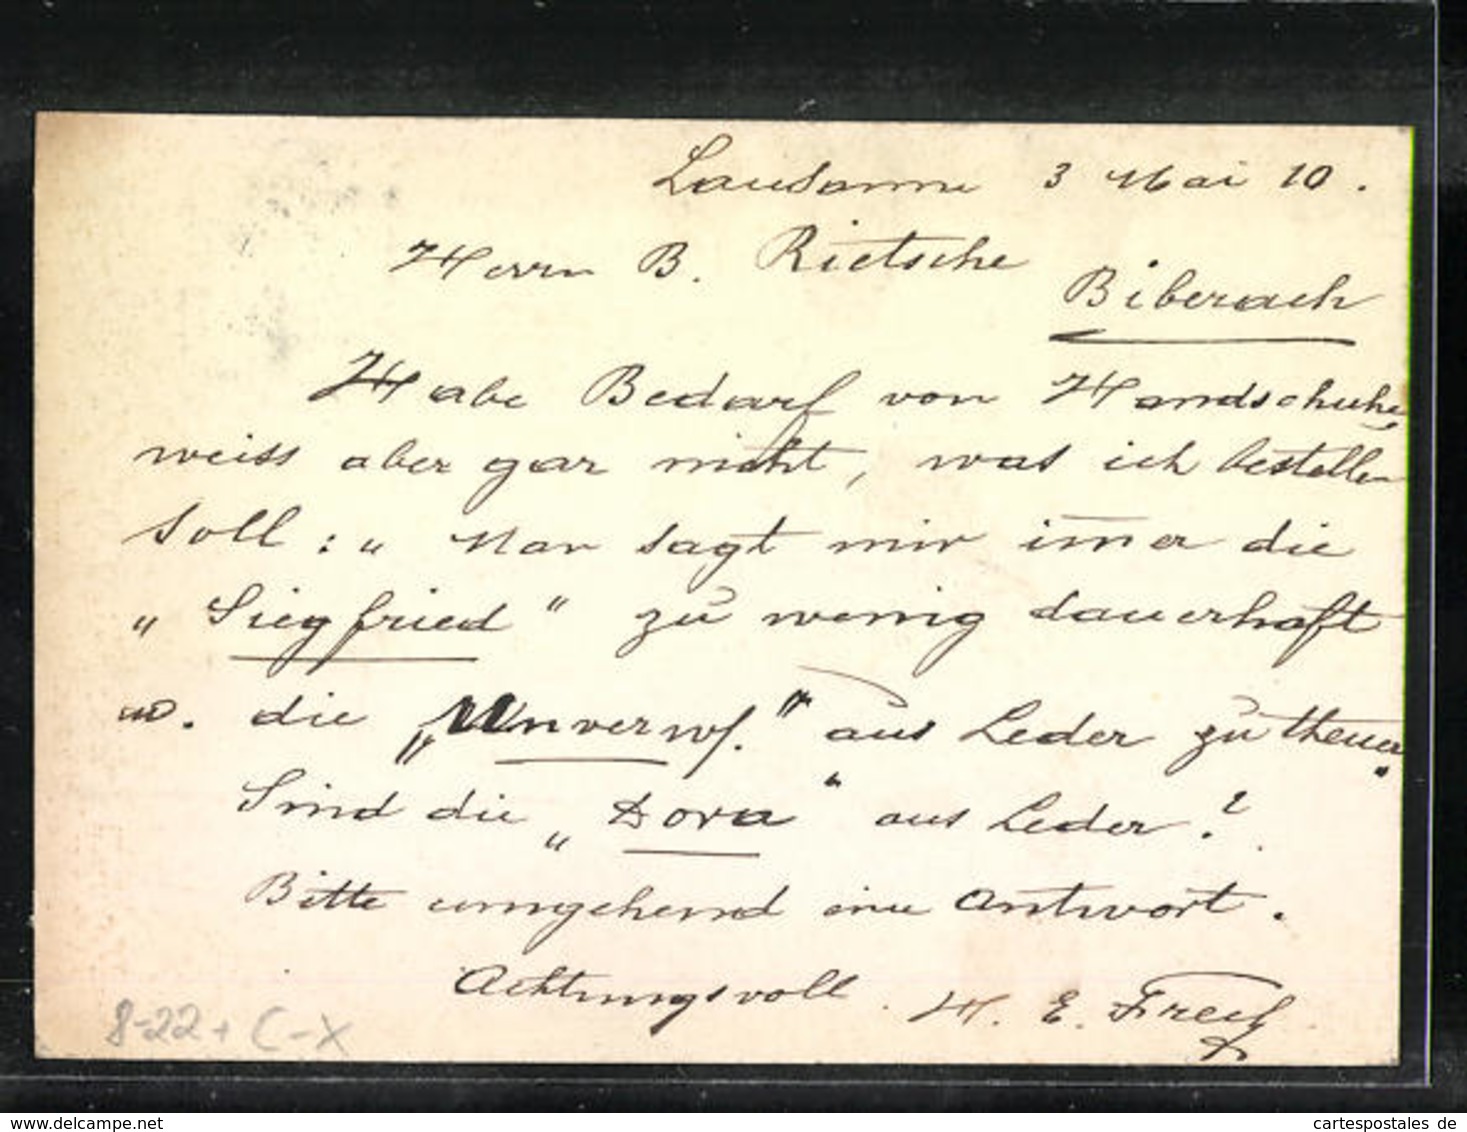 Lausanne 3 Mai 10.
Herrn B. Rietsche
Biberach
Habe Bedarf von Handschuhe,
weiss aber gar nicht, was ich bestellen
soll: „ Man sagt mir im̅er die
„Siegfried" zu wenig dauerhaft
u. die „Unverwf." aus Leder zu theuer"
Sind die „Dora" aus Leder?
Bitte umgehend eine Antwort.
Achtungsvoll. H. E. Frech
8-22+ C-X
www.ansichtskartenversand.com
cartespostales de